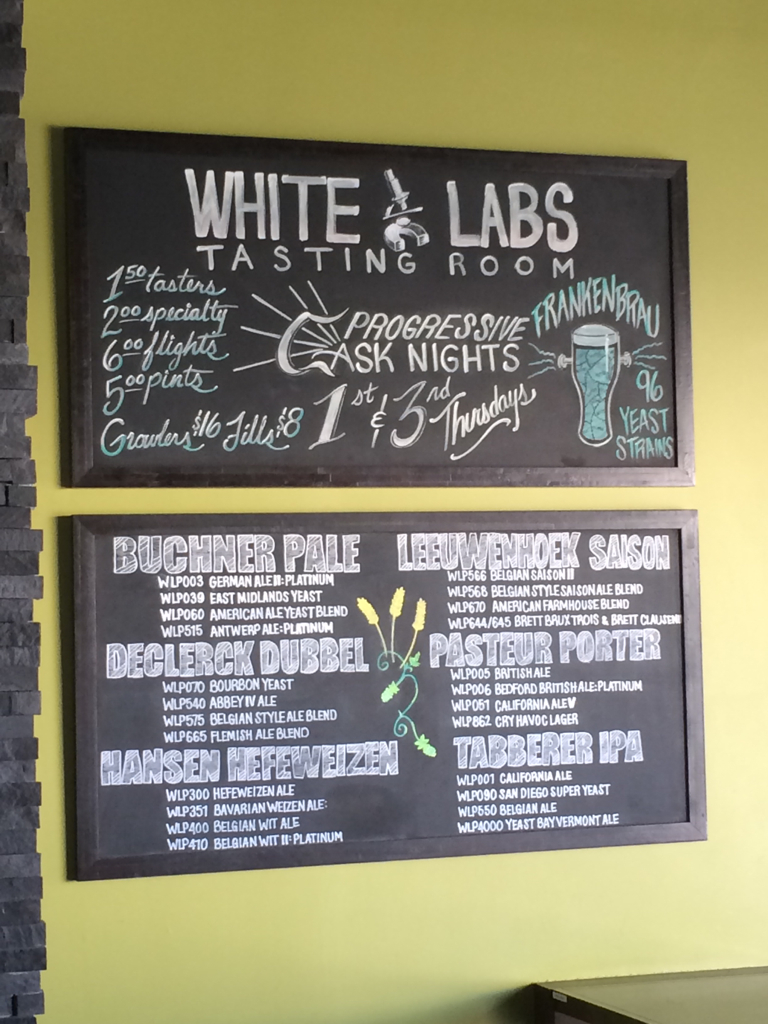 WHITE LABS
TASTING ROOM
1.50 tasters
2.00 specialty
6.00 flights
5.00 pints
Growlers $16 Fills $8
PROGRESSIVE
CASK NIGHTS
1st & 3rd Thursdays
FRANKENBRAU
96
YEAST
STRAINS
BUCHNER PALE
WLP003 GERMAN ALE II: PLATINUM
WLP039 EAST MIDLANDS YEAST
WLP060 AMERICAN ALE YEAST BLEND
WLP515 ANTWERP ALE: PLATINUM
DECLERCK DUBBEL
WLP070 BOURBON YEAST
WLP540 ABBEY IV ALE
WLP575 BELGIAN STYLE ALE BLEND
WLP665 FLEMISH ALE BLEND
HANSEN HEFEWEIZEN
WLP300 HEFEWEIZEN ALE
WLP351 BAVARIAN WEIZEN ALE:
WLP400 BELGIAN WIT ALE
WLP410 BELGIAN WIT II: PLATINUM
LEEUWENHOEK SAISON
WLP566 BELGIAN SAISON II
WLP568 BELGIAN STYLE SAISON ALE BLEND
WLP670 AMERICAN FARMHOUSE BLEND
WLP644/645 BRETT BRUX TROIS & BRETT CLAUSENII
PASTEUR PORTER
WLP005 BRITISH ALE
WLP006 BEDFORD BRITISH ALE: PLATINUM
WLP051 CALIFORNIA ALE V
WLP862 CRY HAVOC LAGER
TABBERER IPA
WLP001 CALIFORNIA ALE
WLP090 SAN DIEGO SUPER YEAST
WLP550 BELGIAN ALE
WLP4000 YEAST BAY VERMONT ALE